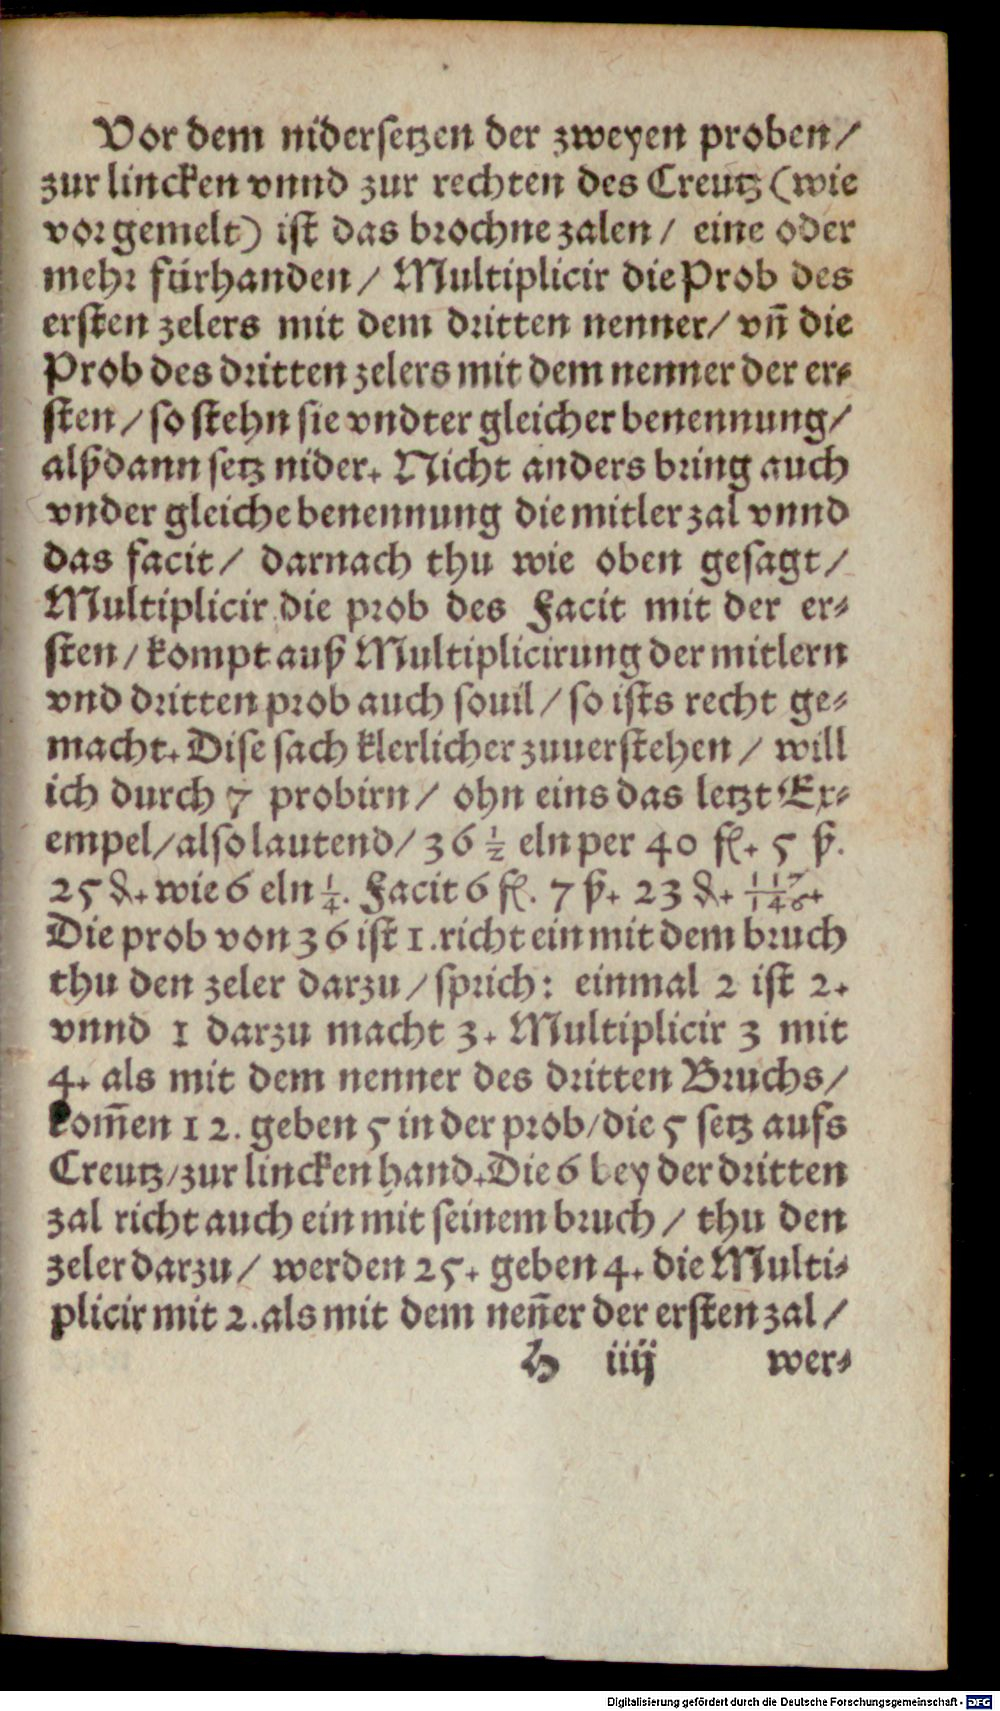 Vor dem nidersetzen der zweyen proben/
zur lincken vnnd zur rechten des Creutz (wie
vor gemelt) ist das brochne zalen / eine oder
mehr fürhanden / Multiplicir die Prob des
ersten zelers mit dem dritten nenner/ vn̄ die
Prob des dritten zelers mit dem nenner der er-
sten / so stehn sie vndter gleicher benennung/
alßdann setz nider. Nicht anders bring auch
vnder gleiche benennung die mitler zal vnnd
das facit / darnach thu wie oben gesagt /
Multiplicir die prob des Facit mit der er-
sten / kompt auß Multiplicirung der mitlern
vnd dritten prob auch souil / so ists recht ge-
macht. Dise sach klerlicher zuuerstehen / will
ich durch 7 probirn / ohn eins das letzt Ex-
empel/ also lautend/ 36 1/2 eln per 40 fl. 5 ß.
25 ₰. wie 6 eln 1/4. Facit 6 fl. 7 ß. 23 ₰. 117/146.
Die prob von 36 ist 1. richt ein mit dem bruch
thu den zeler darzu / sprich: einmal 2 ist 2.
vnnd 1 darzu macht 3. Multiplicir 3 mit
4. als mit dem nenner des dritten Bruchs/
kom̄en 12. geben 5 in der prob/ die 5 setz aufs
Creutz/ zur lincken hand. Die 6 bey der dritten
zal richt auch ein mit seinem bruch / thu den
zeler darzu / werden 25. geben 4. die Multi-
plicir mit 2. als mit dem nen̄er der ersten zal /
H iiij wer-
Digitalisierung gefördert durch die Deutsche Forschungsgemeinschaft - DFG